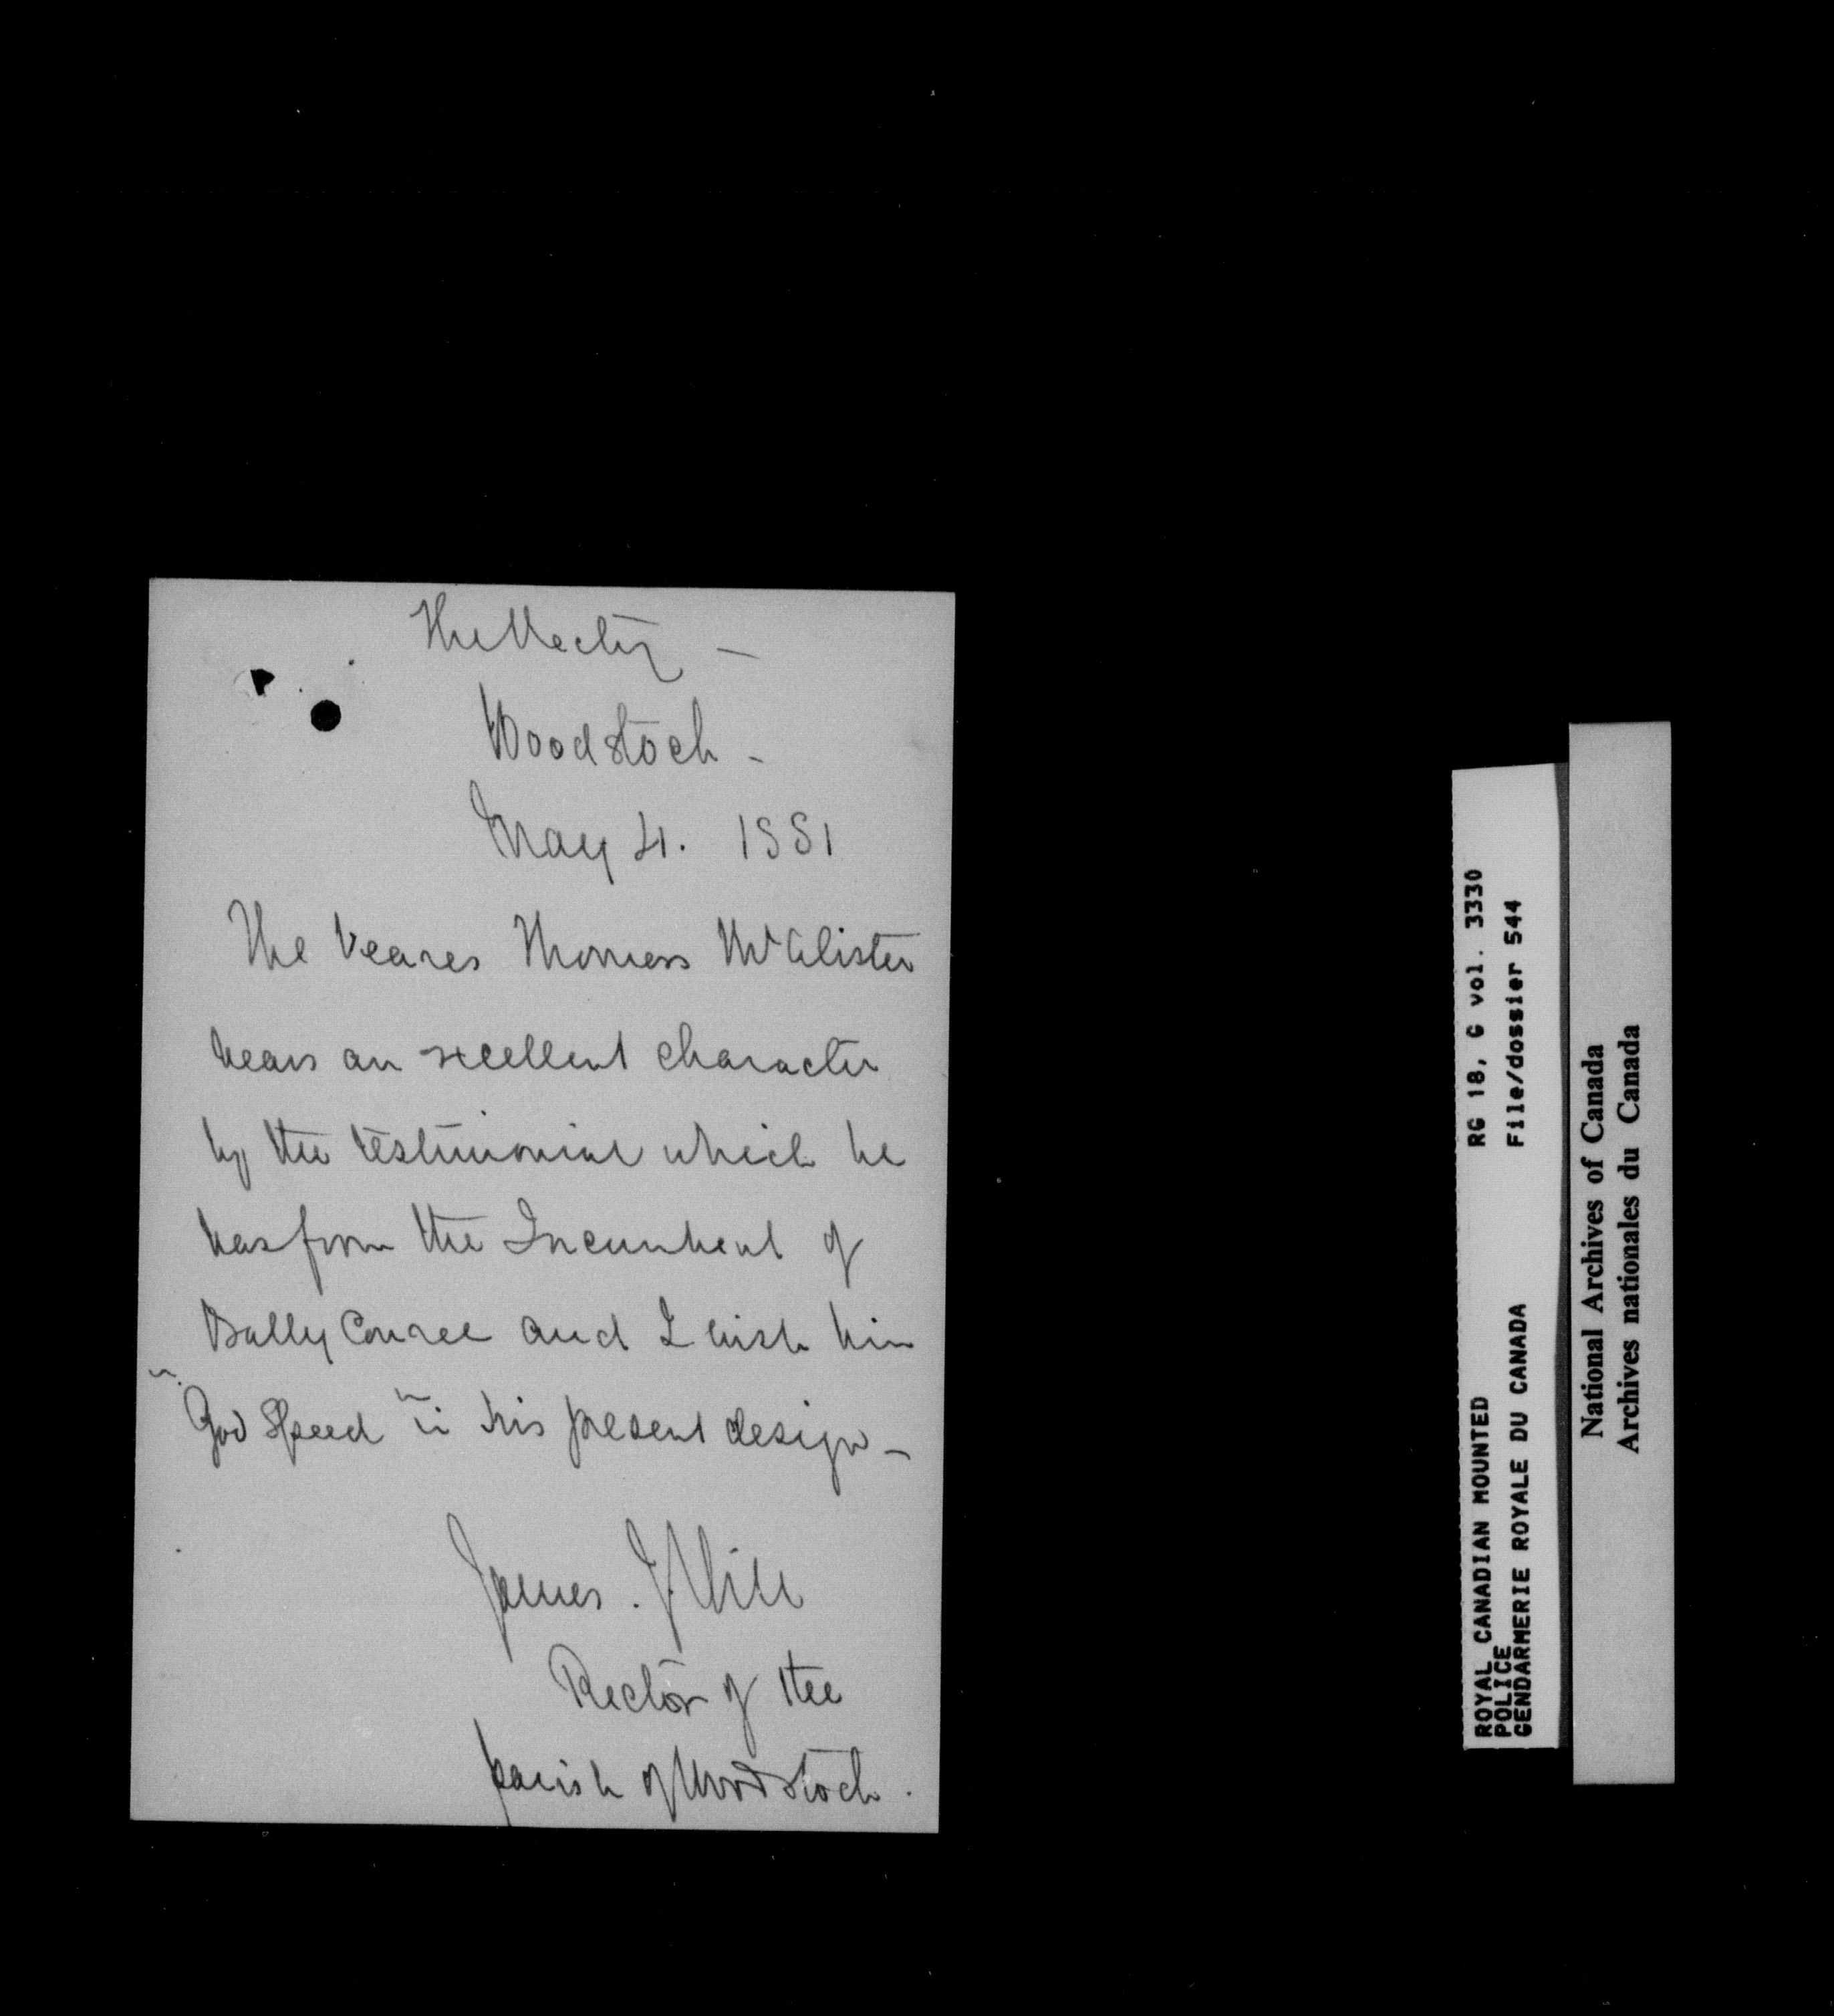 The Rectory —
Woodstock -
May 4. 1881
The bearer Thomas McAlister
bears an excellent character
by the testimonial which he
has from the Incumbent of
Bally Conree and I wish him
"God Speed" in his present design —
James. J. Hill
Rector of the
parish of Woodstock.
ROYAL CANADIAN MOUNTED
POLICE
GENDARMERIE ROYALE DU CANADA
RG 18, G vol. 3330
File/dossier 544
National Archives of Canada
Archives nationales du Canada